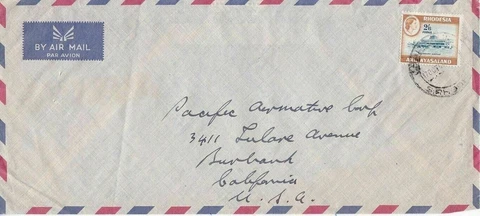 BY AIR MAIL
PAR AVION
RHODESIA
2/6
NYASALAND
Pacific Airmotive Corp
3411 Tulare Avenue
Burbank
California
U.S.A.